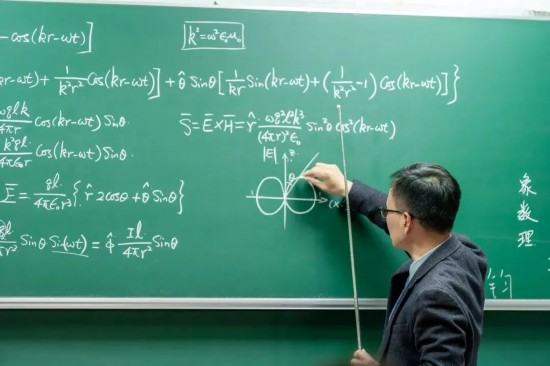 -cos(kr-ωt)]
k²=ω²ε₀μ₀
kr-ωt)+1/(k²r²)Cos(kr-ωt)]+θ̂ Sinθ[1/(kr)Sin(kr-ωt)+(1/(k²r²)-1)Cos(kr-ωt)]}
ωqlk/(4πr) Cos(kr-ωt) Sinθ.
S̄=Ē×H̄=r̂ ωq²l²k³/((4πr)²ε₀) Sin²θ Cos²(kr-ωt)
k²ql/(4πε₀r) Cos(kr-ωt) Sinθ.
|E|
z
θ
Ē=ql/(4πε₀r³){r̂ 2cosθ+θ̂ Sinθ}
Sinθ Sin(ωt)=φ̂ Il/(4πr²) Sinθ
象数理